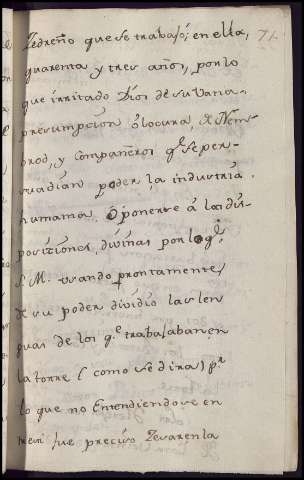 Zedreño que se trabajó, en ella,
71
quarenta y tres años, por lo
que irritado Dios de su vana
presumpción ó locura, de Nem-
brod, y compañeros q.e se per-
suadian poder, la industria
humana oponerse á las dis-
posiciones, divinas por lo q.e
S. M. usando prontamente
de su poder dividió las len
guas de los q.e trabajaban en
la torre (como se dira) p.r
lo que no Entendiendose en
tresi fue preciso Zesaren la